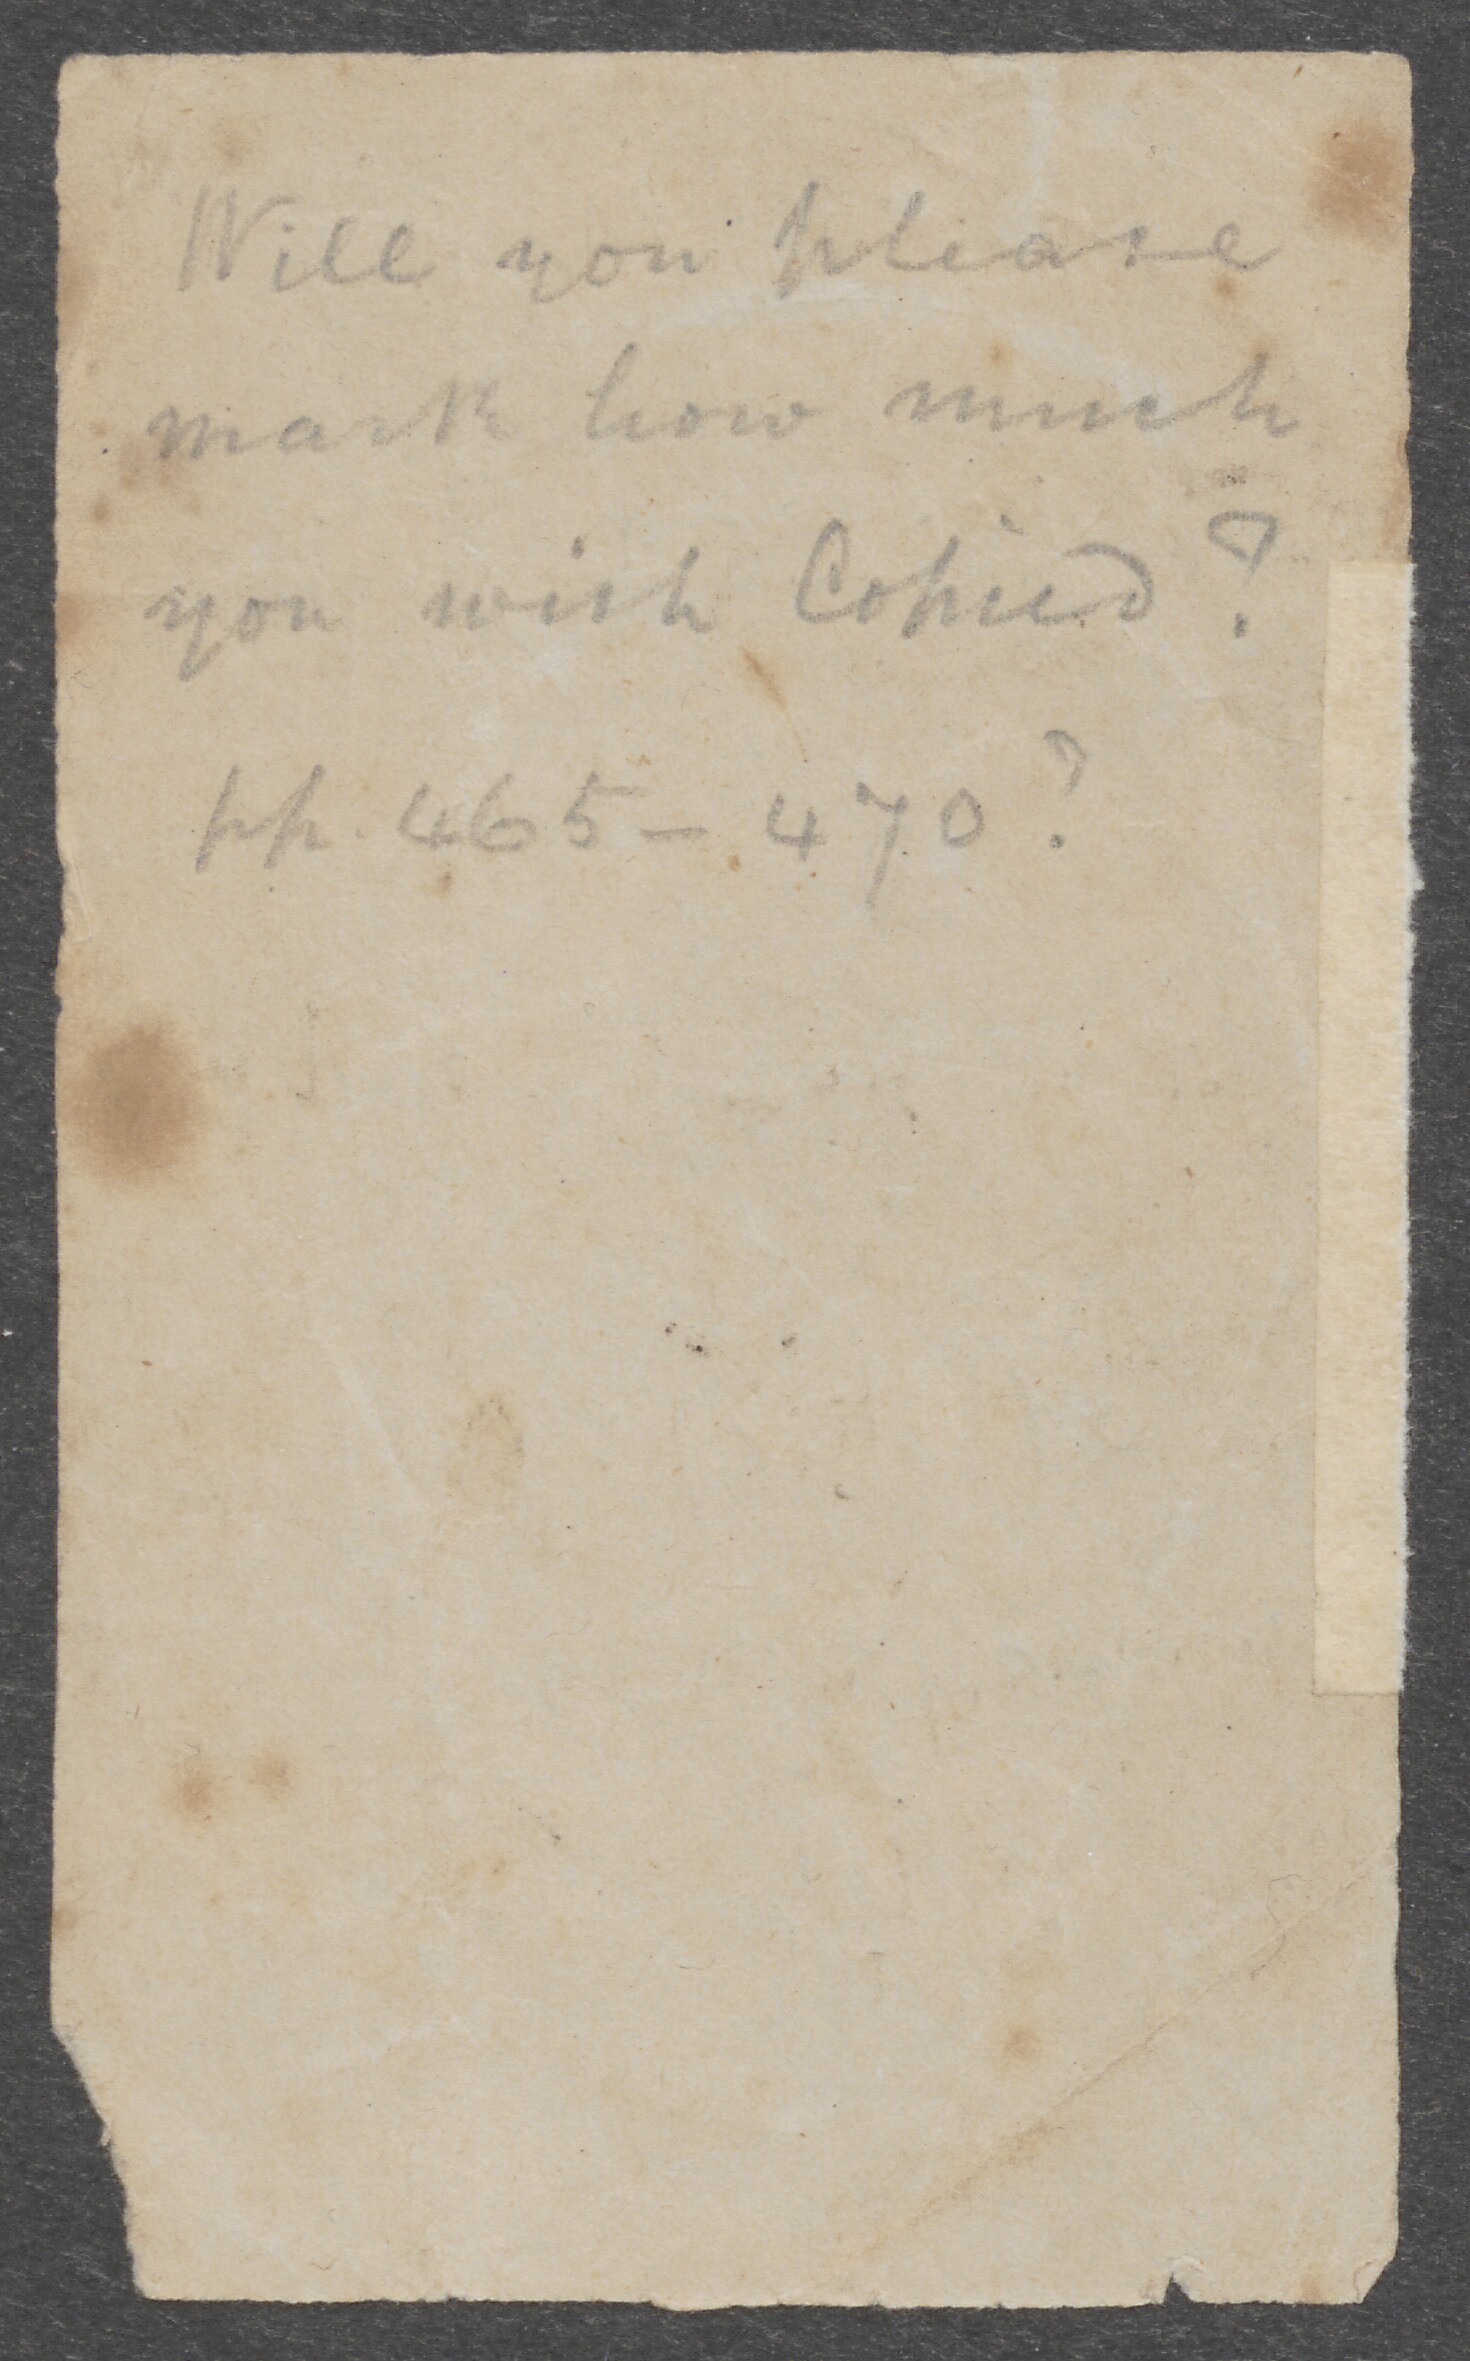 Will you please
mark how much
you wish Copied?
pp. 465 – 470?